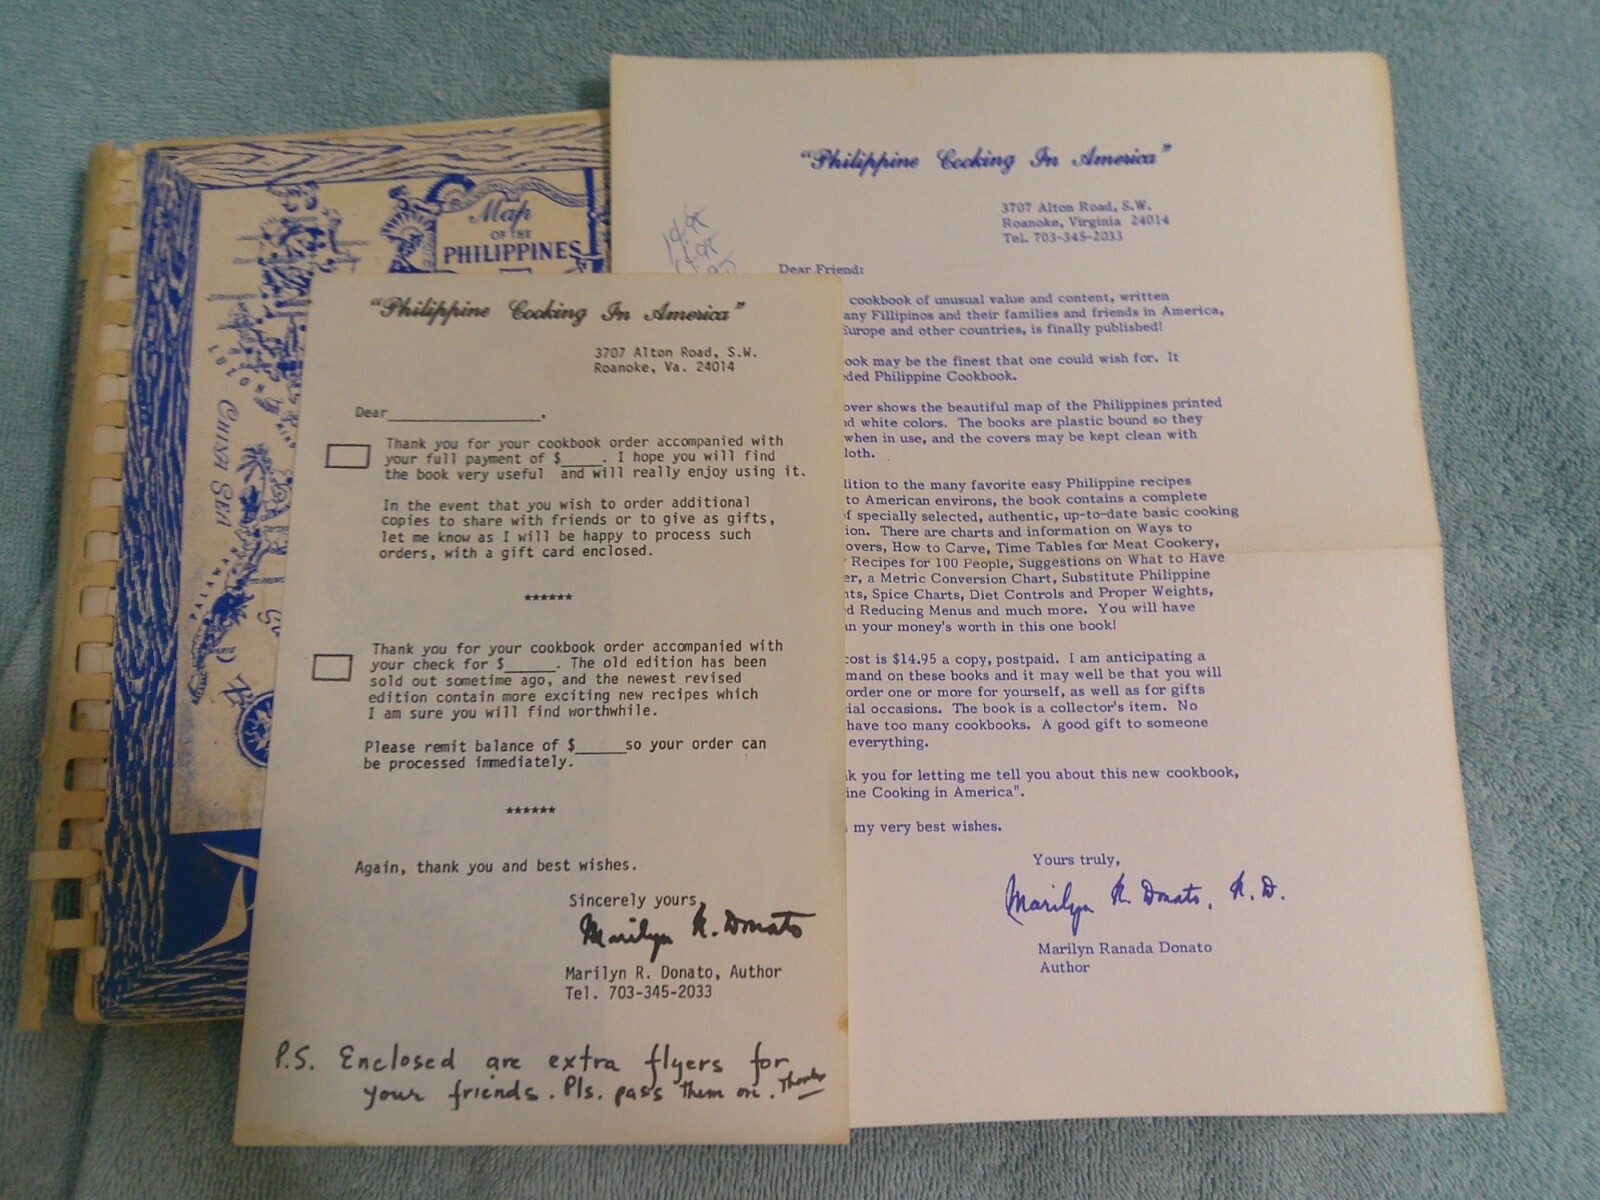 Map
OF THE
PHILIPPINES
LUZON
CHINA SEA
PALAWAN
"Philippine Cooking In America"
3707 Alton Road, S.W.
Roanoke, Va. 24014
Dear_______________,
Thank you for your cookbook order accompanied with
your full payment of $____. I hope you will find
the book very useful and will really enjoy using it.
In the event that you wish to order additional
copies to share with friends or to give as gifts,
let me know as I will be happy to process such
orders, with a gift card enclosed.
******
Thank you for your cookbook order accompanied with
your check for $_____. The old edition has been
sold out sometime ago, and the newest revised
edition contain more exciting new recipes which
I am sure you will find worthwhile.
Please remit balance of $_____so your order can
be processed immediately.
******
Again, thank you and best wishes.
Sincerely yours,
Marilyn R. Donato
Marilyn R. Donato, Author
Tel. 703-345-2033
P.S. Enclosed are extra flyers for
your friends. Pls. pass them on. Thanks
"Philippine Cooking In America"
3707 Alton Road, S.W.
Roanoke, Virginia 24014
Tel. 703-345-2033
Dear Friend:
cookbook of unusual value and content, written
any Fillipinos and their families and friends in America,
Europe and other countries, is finally published!
ook may be the finest that one could wish for. It
ded Philippine Cookbook.
over shows the beautiful map of the Philippines printed
d white colors. The books are plastic bound so they
when in use, and the covers may be kept clean with
loth.
dition to the many favorite easy Philippine recipes
to American environs, the book contains a complete
f specially selected, authentic, up-to-date basic cooking
ion. There are charts and information on Ways to
overs, How to Carve, Time Tables for Meat Cookery,
Recipes for 100 People, Suggestions on What to Have
er, a Metric Conversion Chart, Substitute Philippine
nts, Spice Charts, Diet Controls and Proper Weights,
d Reducing Menus and much more. You will have
an your money's worth in this one book!
cost is $14.95 a copy, postpaid. I am anticipating a
mand on these books and it may well be that you will
order one or more for yourself, as well as for gifts
ial occasions. The book is a collector's item. No
have too many cookbooks. A good gift to someone
everything.
k you for letting me tell you about this new cookbook,
ine Cooking in America".
my very best wishes.
Yours truly,
Marilyn R. Donato, R.D.
Marilyn Ranada Donato
Author